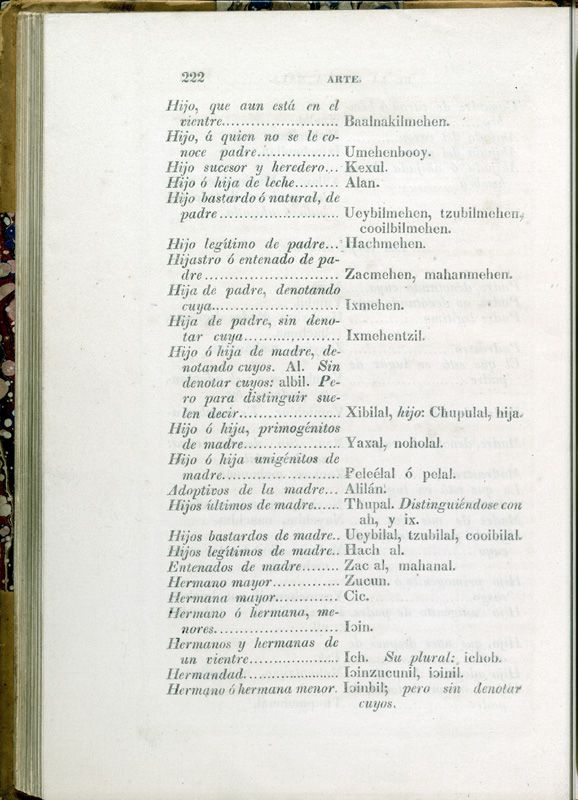 222 ARTE.
Hijo, que aun está en el
vientre........................ Baalnakilmehen.
Hijo, á quien no se le co-
noce padre................. Umehenbooy.
Hijo sucesor y heredero... Kexul.
Hijo ó hija de leche......... Alan.
Hijo bastardo ó natural, de
padre......................... Ueybilmehen, tzubilmehen,
cooilbilmehen.
Hijo legítimo de padre... Hachmehen.
Hijastro ó entenado de pa-
dre............................ Zacmehen, mahanmehen.
Hija de padre, denotando
cuya........................... Ixmehen.
Hija de padre, sin deno-
tar cuya.................... Ixmehentzil.
Hijo ó hija de madre, de-
notando cuyos. Al. Sin
denotar cuyos: albil. Pe-
ro para distinguir sue-
len decir..................... Xibilal, hijo: Chupulal, hija.
Hijo ó hija, primogénitos
de madre.................... Yaxal, noholal.
Hijo ó hija unigénitos de
madre........................ Peleélal ó pelal.
Adoptivos de la madre... Alilán.
Hijos últimos de madre...... Thupal. Distinguiéndose con
ah, y ix.
Hijos bastardos de madre.. Ueybilal, tzubilal, cooibilal.
Hijos legítimos de madre.. Hach al.
Entenados de madre........ Zac al, mahanal.
Hermano mayor.............. Zucun.
Hermana mayor............. Cic.
Hermano ó hermana, me-
nores.......................... Iɔin.
Hermanos y hermanas de
un vientre................... Ich. Su plural: ichob.
Hermandad..................... Iɔinzucunil, iɔinil.
Hermano ó hermana menor. Iɔinbil; pero sin denotar
cuyos.